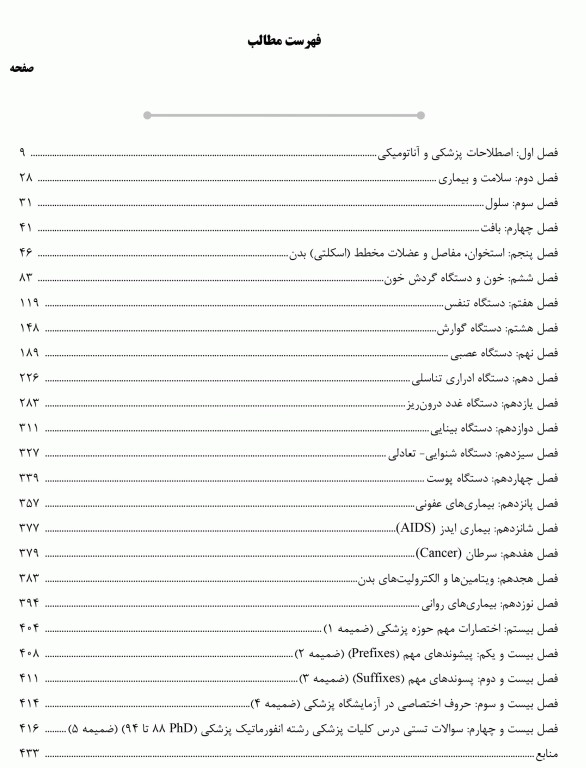 فهرست مطالب
صفحه
فصل اول: اصطلاحات پزشکی و آناتومیکی ........ ۹
فصل دوم: سلامت و بیماری ........ ۲۸
فصل سوم: سلول ........ ۳۱
فصل چهارم: بافت ........ ۴۱
فصل پنجم: استخوان، مفاصل و عضلات مخطط (اسکلتی) بدن ........ ۴۶
فصل ششم: خون و دستگاه گردش خون ........ ۸۳
فصل هفتم: دستگاه تنفس ........ ۱۱۹
فصل هشتم: دستگاه گوارش ........ ۱۴۸
فصل نهم: دستگاه عصبی ........ ۱۸۹
فصل دهم: دستگاه ادراری تناسلی ........ ۲۲۶
فصل یازدهم: دستگاه غدد درون‌ریز ........ ۲۸۳
فصل دوازدهم: دستگاه بینایی ........ ۳۱۱
فصل سیزدهم: دستگاه شنوایی- تعادلی ........ ۳۲۷
فصل چهاردهم: دستگاه پوست ........ ۳۳۹
فصل پانزدهم: بیماری‌های عفونی ........ ۳۵۷
فصل شانزدهم: بیماری ایدز (AIDS) ........ ۳۷۷
فصل هفدهم: سرطان (Cancer) ........ ۳۷۹
فصل هجدهم: ویتامین‌ها و الکترولیت‌های بدن ........ ۳۸۳
فصل نوزدهم: بیماری‌های روانی ........ ۳۹۴
فصل بیستم: اختصارات مهم حوزه پزشکی (ضمیمه ۱) ........ ۴۰۴
فصل بیست و یکم: پیشوندهای مهم (Prefixes) (ضمیمه ۲) ........ ۴۰۸
فصل بیست و دوم: پسوندهای مهم (Suffixes) (ضمیمه ۳) ........ ۴۱۱
فصل بیست و سوم: حروف اختصاصی در آزمایشگاه پزشکی (ضمیمه ۴) ........ ۴۱۴
فصل بیست و چهارم: سوالات تستی درس کلیات پزشکی رشته انفورماتیک پزشکی (PhD ۸۸ تا ۹۴) (ضمیمه ۵) ........ ۴۱۶
منابع ........ ۴۳۳